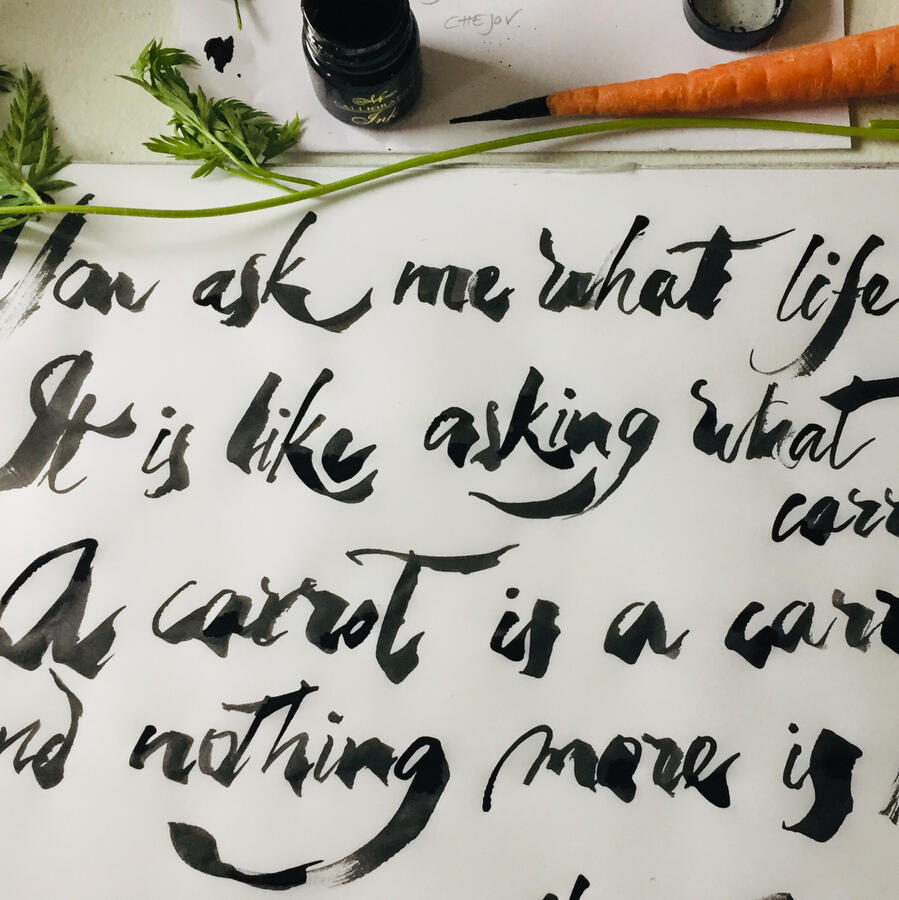 CHEJOV.
CALLIGRAPHY
Ink
You ask me what life
It is like asking what
carr
A carrot is a carr
nd nothing more is